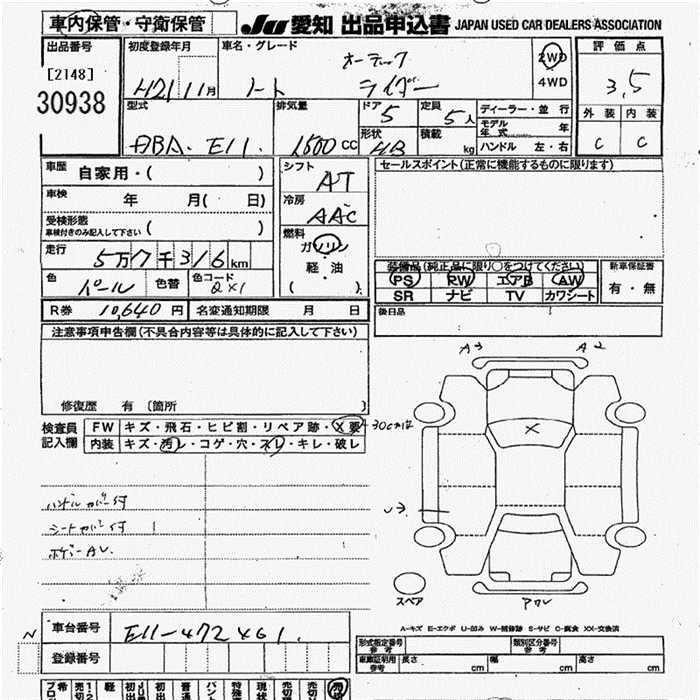 車内保管・守衛保管
JU 愛知 出品申込書 JAPAN USED CAR DEALERS ASSOCIATION
出品番号 初度登録年月 車名・グレード 評価点
[2148] オーテック 2WD
30938 H21 11月 ノート ライダー 4WD 3,5
型式 排気量 ドア 5 定員 5人 ディーラー・並行 外装 内装
モデル年式 年
ABA・E11. 1500 CC 形状 HB 積載 kg ハンドル 左・右 C C
車歴 自家用・( ) シフト AT セールスポイント(正常に機能するものに限ります)
車検 年 月( 日) 冷房 AAC
受検形態
車検付きのみ記入して下さい ( ) 燃料
走行 5万7千316km ガソリン 装備品(純正品に限り○をつけてください) 新車保証書
軽・油 PS RW エアB AW 有・無
色 パール 色替 色コード QX1 ( ) SR ナビ TV カワシート
R券 10,640円 名変通知期限 月 日 後日品
注意事項申告欄(不具合内容等は具体的に記入して下さい)
A3 A2
修復歴 有 (箇所 )
検査員 FW キズ・飛石・ヒビ割・リペア跡・X要
記入欄 内装 キズ・汚レ・コゲ・穴・スレ・キレ・破レ
X
ハンドルカバー付
シートカバー付
ボデーAU.
スペア
A-キズ E-エクボ U-凹み W-補修跡 S-サビ C-腐食 XX-交換済
N 車台番号 E11-472461. 形式指定番号 参考 類別区分番号 参考
登録番号 車庫証明用 参考 長さ cm 幅 cm 高さ cm